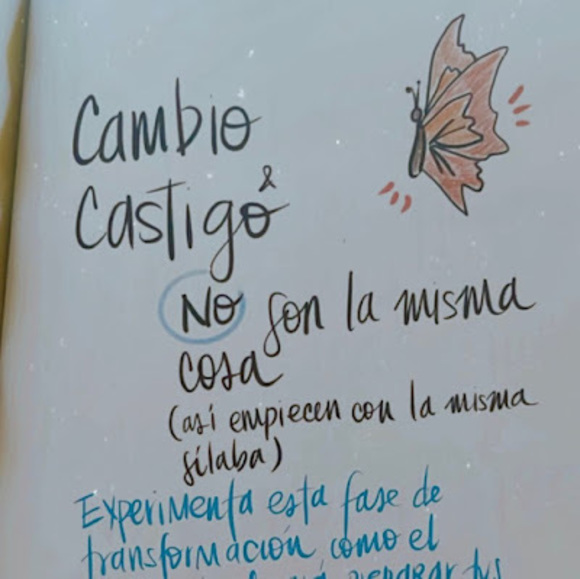 Cambio
&
Castigo
NO son la misma
cosa
(así empiecen con la misma
sílaba)
Experimenta esta fase de
transformación como el
preparar tus